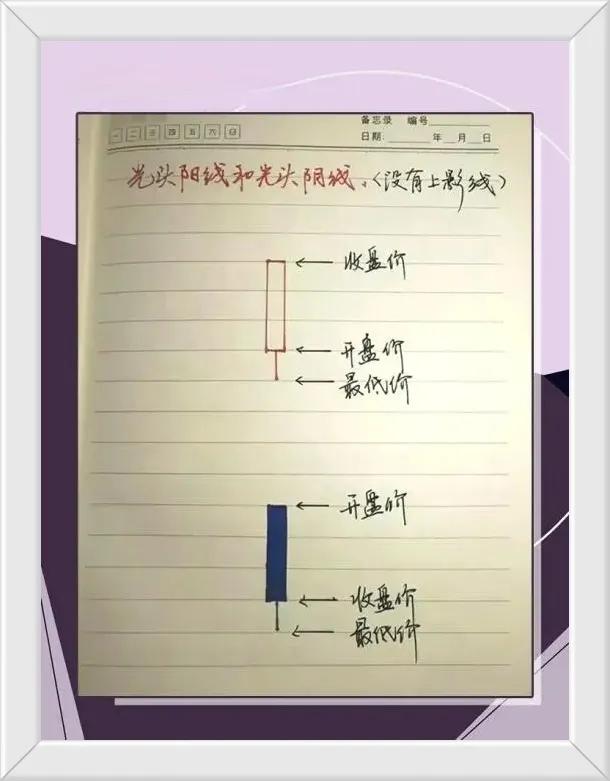 一 二 三 四 五 六 日
备忘录 编号
日期: 年 月 日
光头阳线和光头阴线.(没有上影线)
收盘价
开盘价
最低价
开盘价
收盘价
最低价